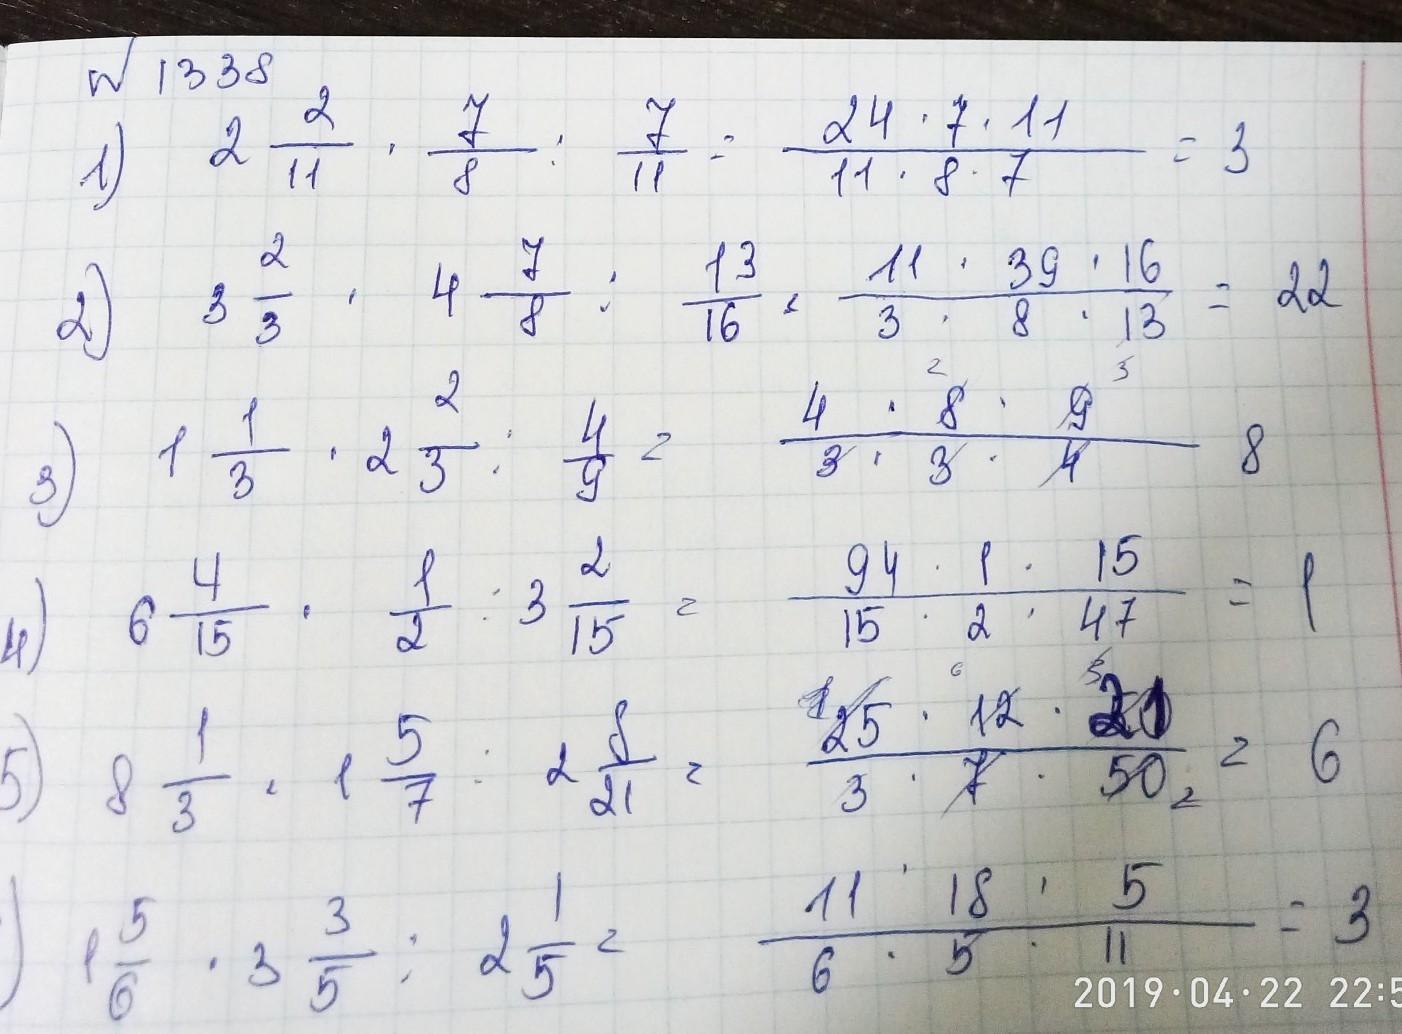 № 1338
1) 2 2/11 · 7/8 : 7/11 = 24 · 7 · 11 / 11 · 8 · 7 = 3
2) 3 2/3 · 4 7/8 : 13/16 = 11 · 39 · 16 / 3 · 8 · 13 = 22
3) 1 1/3 · 2 2/3 : 4/9 = 4 · 8 · 9 / 3 · 3 · 4 8
4) 6 4/15 · 1/2 : 3 2/15 = 94 · 1 · 15 / 15 · 2 · 47 = 1
5) 8 1/3 · 1 5/7 : 2 8/21 = 25 · 12 · 21 / 3 · 7 · 50 = 6
) 1 5/6 · 3 3/5 : 2 1/5 = 11 · 18 · 5 / 6 · 5 · 11 = 3
2019·04·22 22:5